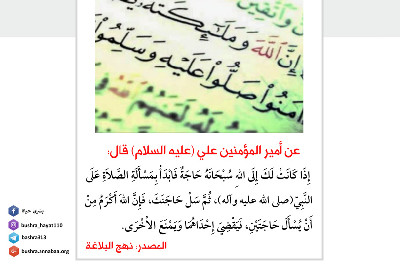 إِنَّ ٱللَّهَ وَمَلَٰٓئِكَتَهُۥ
ءَامَنُوا۟ صَلُّوا۟ عَلَيْهِ وَسَلِّمُوا۟
عن أمير المؤمنين علي (عليه السلام) قال:
إِذَا كَانَتْ لَكَ إِلَى اللهِ سُبْحَانَهُ حَاجَةٌ فَابْدَأْ بِمَسْأَلَةِ الصَّلَاةِ عَلَى
النَّبِيِّ(صلى الله عليه وآله)، ثُمَّ سَلْ حَاجَتَكَ، فَإِنَّ اللهَ أَكْرَمُ مِنْ
أَنْ يُسْأَلَ حَاجَتَيْنِ، فَيَقْضِيَ إِحْدَاهُمَا وَيَمْنَعَ الْأُخْرَى.
المصدر: نهج البلاغة
bushra_hayat110
bashra313
bushra.annabaa.org